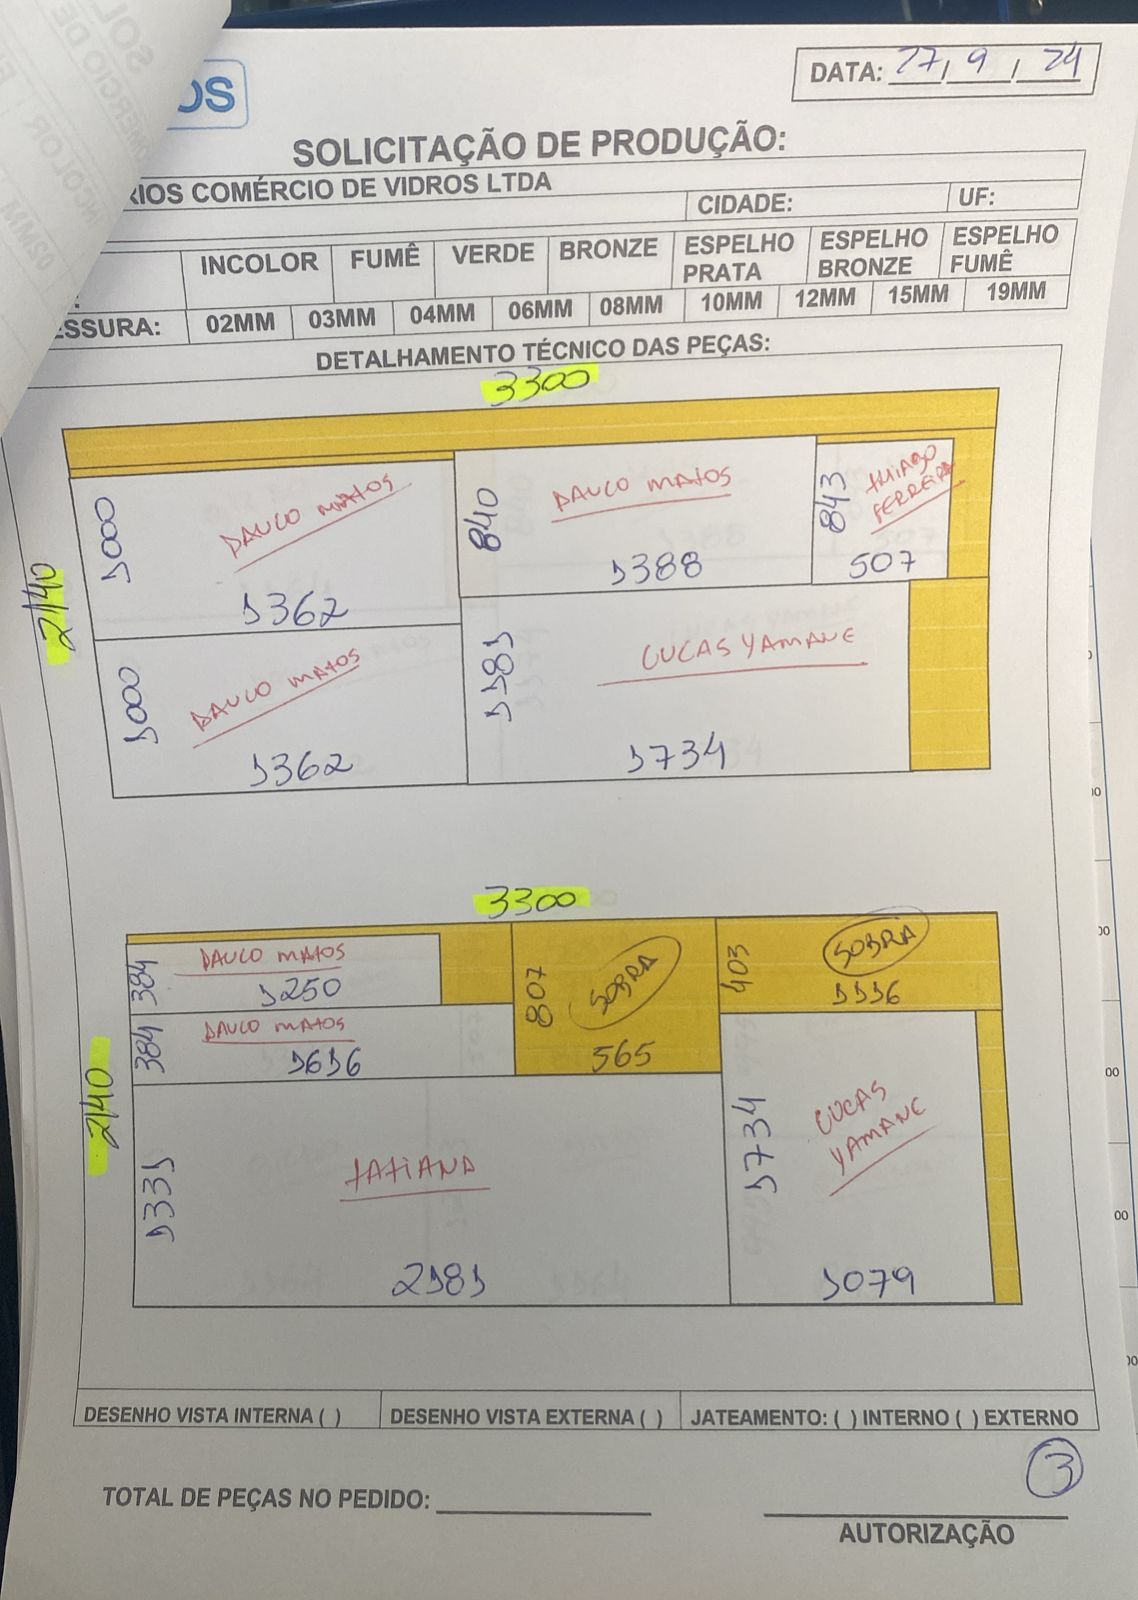 OS
DATA: 27/9/24
SOLICITAÇÃO DE PRODUÇÃO:
RIOS COMÉRCIO DE VIDROS LTDA
CIDADE: UF:
INCOLOR FUMÊ VERDE BRONZE ESPELHO PRATA ESPELHO BRONZE ESPELHO FUMÊ
ESSURA: 02MM 03MM 04MM 06MM 08MM 10MM 12MM 15MM 19MM
DETALHAMENTO TÉCNICO DAS PEÇAS:
3300
2140
1000 PAULO MATOS
1362
840 PAULO MATOS
1388
843 THIAGO FERREIRA
507
1000 PAULO MATOS
1362
1181 LUCAS YAMANE
1734
3300
2140
384 PAULO MATOS
1250
384 PAULO MATOS
1616
807 SOBRA
565
403 SOBRA
1116
1331 TATIANA
2181
1734 LUCAS YAMANE
1079
DESENHO VISTA INTERNA ( ) DESENHO VISTA EXTERNA ( ) JATEAMENTO: ( ) INTERNO ( ) EXTERNO
3
TOTAL DE PEÇAS NO PEDIDO:
AUTORIZAÇÃO